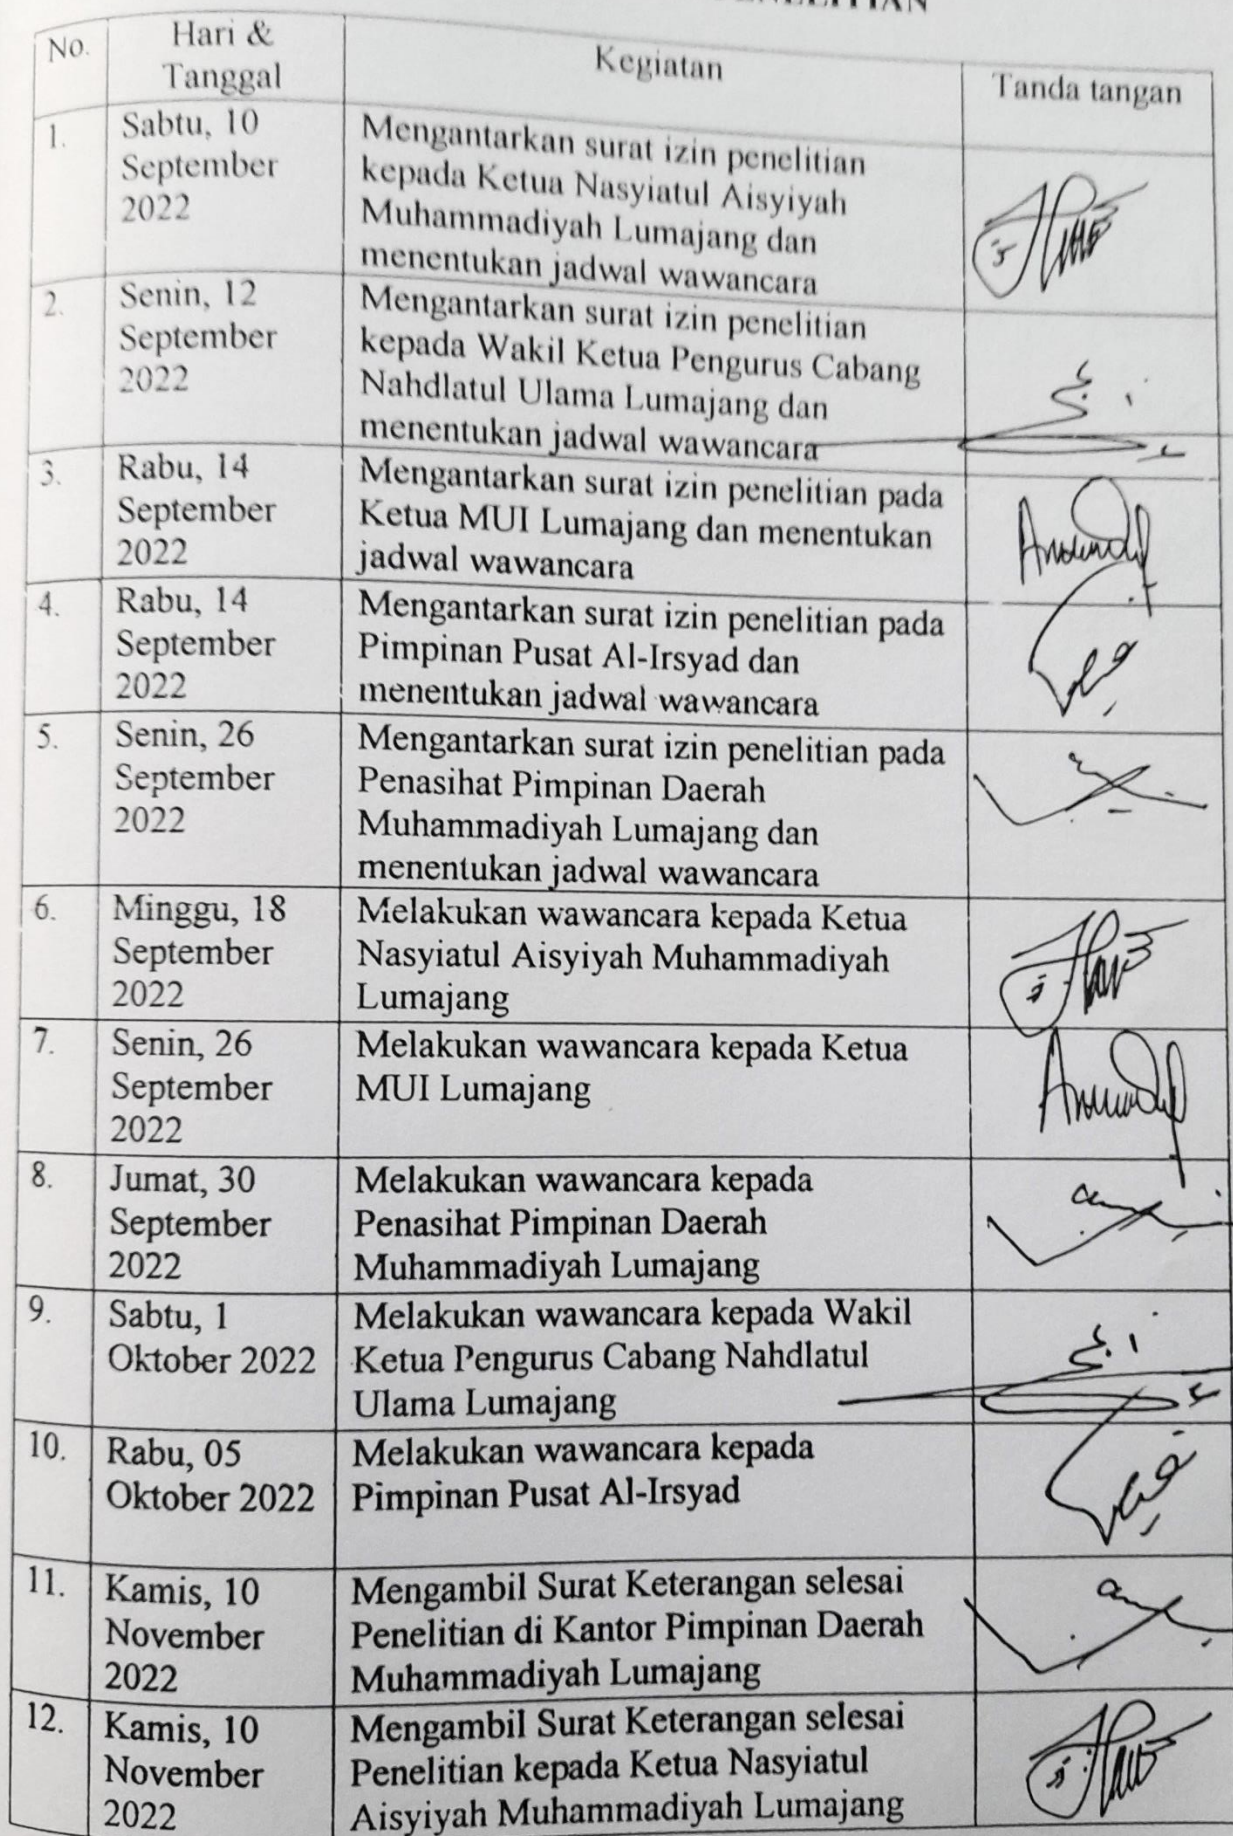 No.
Hari &
Tanggal
Kegiatan
Tanda tangan
1.
Sabtu, 10
September
2022
Mengantarkan surat izin penelitian
kepada Ketua Nasyiatul Aisyiyah
Muhammadiyah Lumajang dan
menentukan jadwal wawancara
2.
Senin, 12
September
2022
Mengantarkan surat izin penelitian
kepada Wakil Ketua Pengurus Cabang
Nahdlatul Ulama Lumajang dan
menentukan jadwal wawancara
3.
Rabu, 14
September
2022
Mengantarkan surat izin penelitian pada
Ketua MUI Lumajang dan menentukan
jadwal wawancara
4.
Rabu, 14
September
2022
Mengantarkan surat izin penelitian pada
Pimpinan Pusat Al-Irsyad dan
menentukan jadwal wawancara
5.
Senin, 26
September
2022
Mengantarkan surat izin penelitian pada
Penasihat Pimpinan Daerah
Muhammadiyah Lumajang dan
menentukan jadwal wawancara
6.
Minggu, 18
September
2022
Melakukan wawancara kepada Ketua
Nasyiatul Aisyiyah Muhammadiyah
Lumajang
7.
Senin, 26
September
2022
Melakukan wawancara kepada Ketua
MUI Lumajang
8.
Jumat, 30
September
2022
Melakukan wawancara kepada
Penasihat Pimpinan Daerah
Muhammadiyah Lumajang
9.
Sabtu, 1
Oktober 2022
Melakukan wawancara kepada Wakil
Ketua Pengurus Cabang Nahdlatul
Ulama Lumajang
10.
Rabu, 05
Oktober 2022
Melakukan wawancara kepada
Pimpinan Pusat Al-Irsyad
11.
Kamis, 10
November
2022
Mengambil Surat Keterangan selesai
Penelitian di Kantor Pimpinan Daerah
Muhammadiyah Lumajang
12.
Kamis, 10
November
2022
Mengambil Surat Keterangan selesai
Penelitian kepada Ketua Nasyiatul
Aisyiyah Muhammadiyah Lumajang